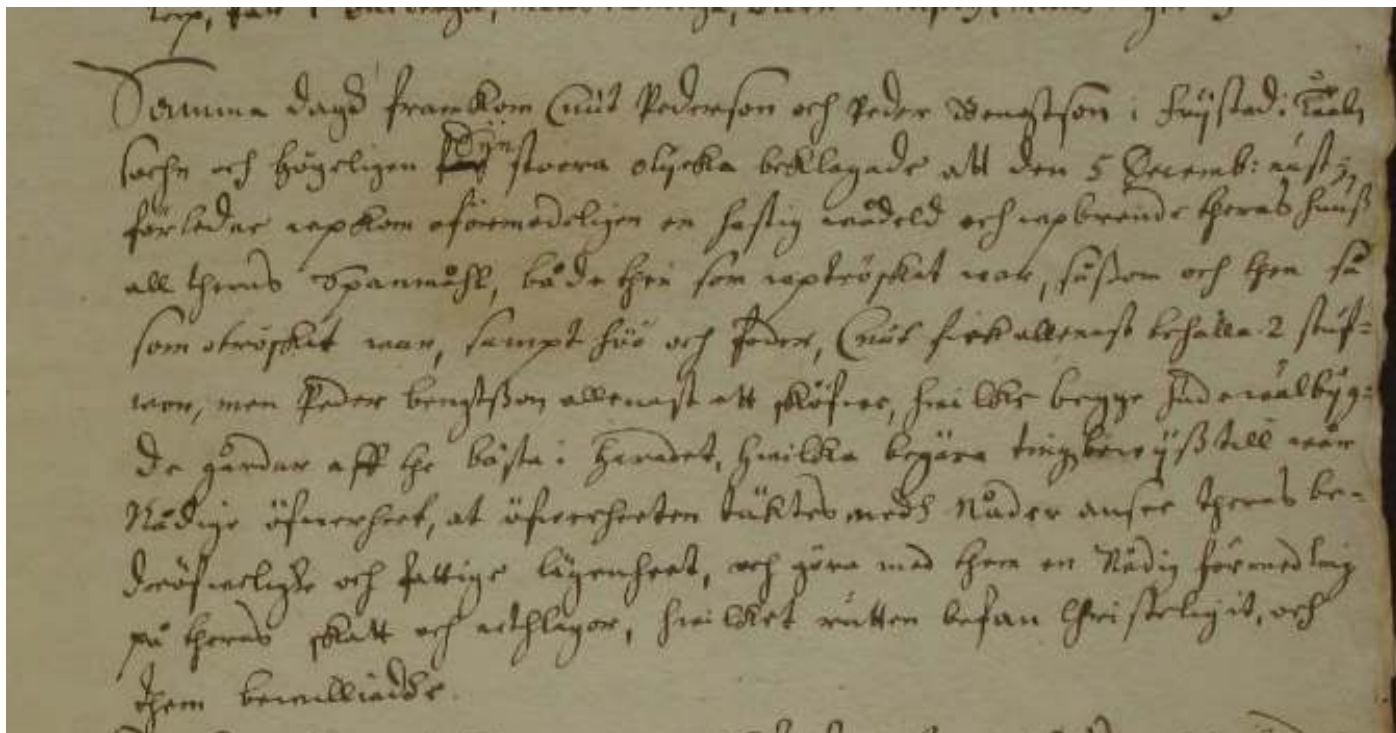 Samma dagh framkom Cnut Pederson och Peder Bengtson i Frÿstad i
sochn och högeligen sÿn stoora olycka beklagade att den 5 Decemb: näst
förledne vpkom oförmodeligen en hastig wådeld och vpbrände theras huuß
all theras Spanmåhl, både then som vptröskat war, såßom och then så
som otröskat war, sampt höö och foder, Cnut fick allenast behålla 2 stuf=
wor, men Peder bengtßon allenast ett, hwilke begge hade wälbÿg:
de gårdar aff the bästa i Häradet, hwilka begära tingzbewÿß till wår
Nådige öfwerheet, at öfwerheeten täktes medh Nåder ansee theras be-
dröfwelighe och fattige lägenheet, och göra med them en Nådig förmedling
på theras skatt och vthlagor, hwilket rätten befan Christeligit, och
them bewilliade.